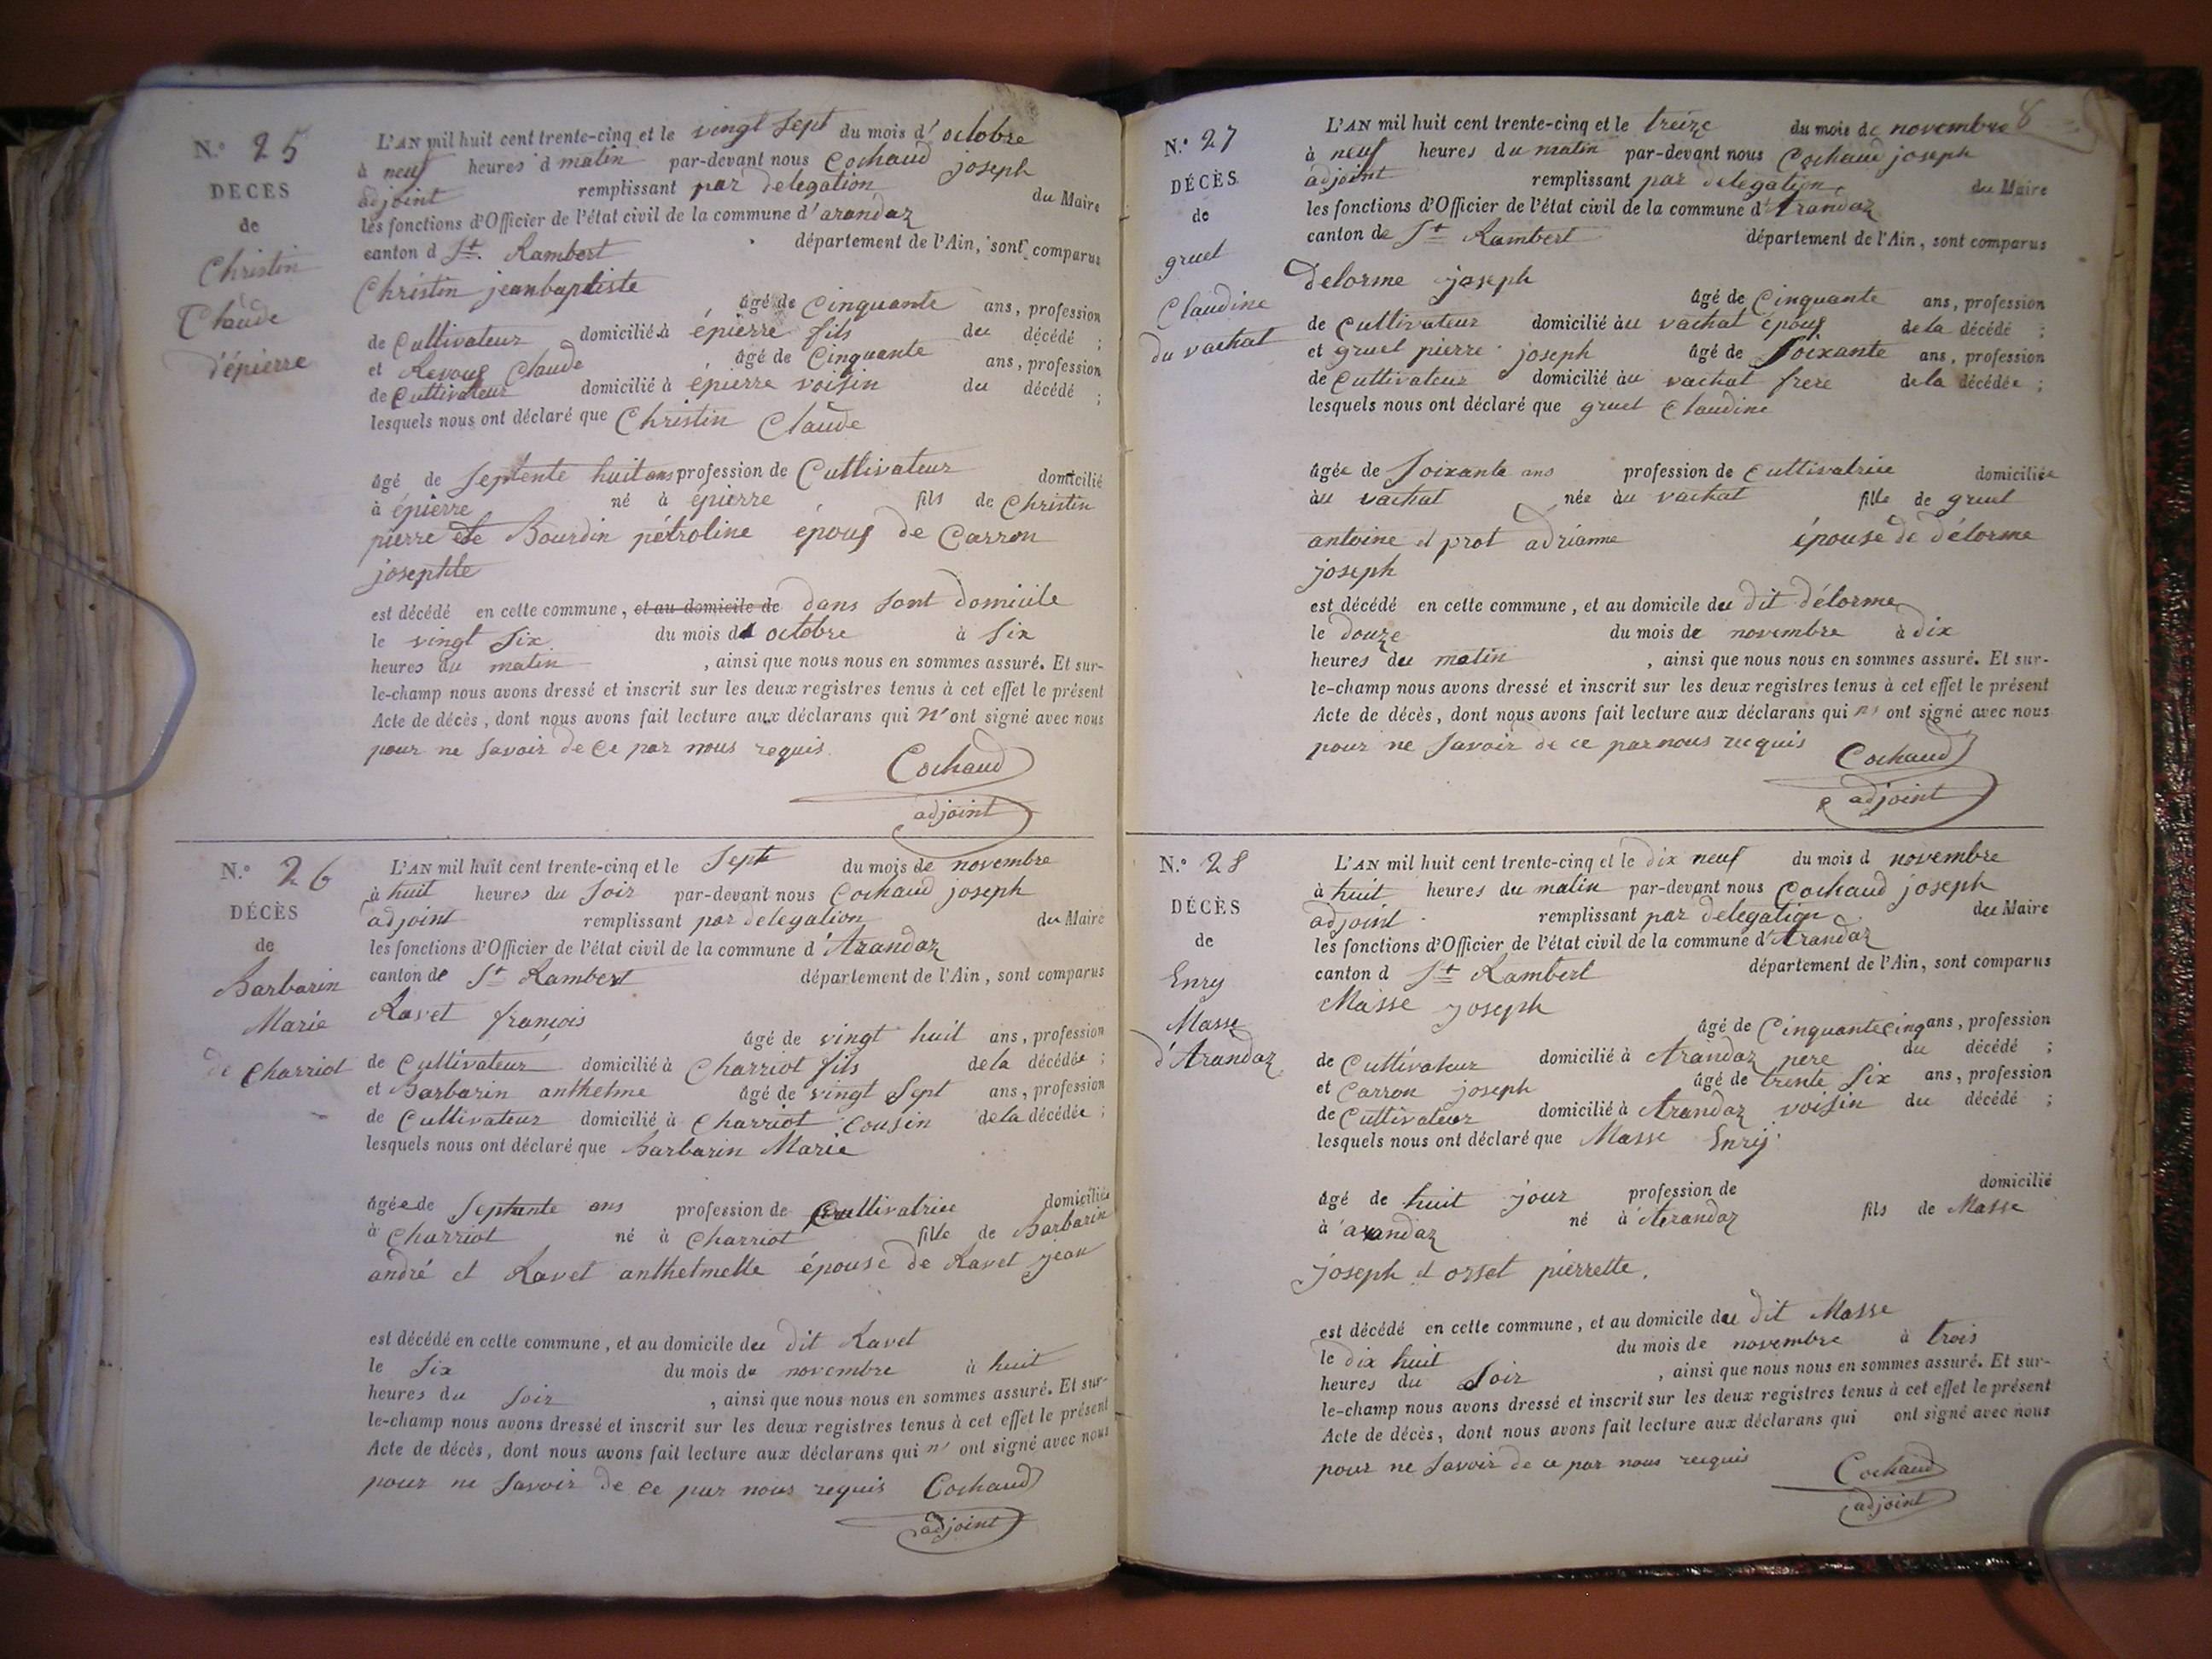 N.º 25
DÉCÈS
de
Christin
Claude
d'épierre
L'AN mil huit cent trente-cinq et le vingt sept du mois d'octobre
à neuf heures d matin par-devant nous Cochaud joseph
adjoint remplissant par delegation du Maire
les fonctions d'Officier de l'état civil de la commune d'arandaz
canton d St. Rambert département de l'Ain, sont comparus
Christin jeanbaptiste
âgé de Cinquante ans, profession
de Cultivateur domicilié à épierre fils du décédé ;
et Revoux Claude âgé de Cinquante ans, profession
de Cultivateur domicilié à épierre voisin du décédé ;
lesquels nous ont déclaré que Christin Claude
âgé de septente huit ans profession de Cultivateur domicilié
à épierre né à épierre fils de Christin
pierre et de Bourdin pétroline époux de Carron
josephte
est décédé en cette commune, et au domicile de dans sont domicile
le vingt six du mois d octobre à six
heures du matin , ainsi que nous nous en sommes assuré. Et sur-
le-champ nous avons dressé et inscrit sur les deux registres tenus à cet effet le présent
Acte de décès, dont nous avons fait lecture aux déclarans qui n'ont signé avec nous
pour ne savoir de ce par nous requis
Cochaud
adjoint
N.º 26
DÉCÈS
de
Barbarin
Marie
de Charriot
L'AN mil huit cent trente-cinq et le sept du mois de novembre
à huit heures du soir par-devant nous Cochaud joseph
adjoint remplissant par delegation du Maire
les fonctions d'Officier de l'état civil de la commune d'Arandaz
canton de St Rambert département de l'Ain, sont comparus
Ravet françois
âgé de vingt huit ans, profession
de Cultivateur domicilié à Charriot fils de la décédée ;
et Barbarin anthelme âgé de vingt sept ans, profession
de Cultivateur domicilié à Charriot Cousin de la décédée ;
lesquels nous ont déclaré que Barbarin Marie
âgée de septante ans profession de Cultivatrice domiciliée
à Charriot né à Charriot fille de Barbarin
andré et Ravet anthelmette épouse de Ravet jean
est décédé en cette commune, et au domicile du dit Ravet
le six du mois de novembre à huit
heures du soir , ainsi que nous nous en sommes assuré. Et sur-
le-champ nous avons dressé et inscrit sur les deux registres tenus à cet effet le présent
Acte de décès, dont nous avons fait lecture aux déclarans qui n' ont signé avec nous
pour ne savoir de ce par nous requis Cochaud
adjoint
8
N.º 27
DÉCÈS
de
gruel
Claudine
du vachat
L'AN mil huit cent trente-cinq et le treize du mois de novembre
à neuf heures du matin par-devant nous Cochaud joseph
adjoint remplissant par delegation du Maire
les fonctions d'Officier de l'état civil de la commune d'Arandaz
canton de St Rambert département de l'Ain, sont comparus
Delorme joseph
âgé de Cinquante ans, profession
de Cultivateur domicilié àu vachat époux de la décédé ;
et gruel pierre joseph âgé de soixante ans, profession
de Cultivateur domicilié àu vachat frere de la décédée ;
lesquels nous ont déclaré que gruel Claudine
âgée de soixante ans profession de Cultivatrice domiciliée
àu vachat née àu vachat fille de gruel
antoine et prot adrianne épouse de délorme
joseph
est décédé en cette commune, et au domicile du dit délorme
le douze du mois de novembre à dix
heures du matin , ainsi que nous nous en sommes assuré. Et sur-
le-champ nous avons dressé et inscrit sur les deux registres tenus à cet effet le présent
Acte de décès, dont nous avons fait lecture aux déclarans qui n' ont signé avec nous
pour ne savoir de ce par nous requis Cochaud
adjoint
N.º 28
DÉCÈS
de
Enry
Masse
d'Arandaz
L'AN mil huit cent trente-cinq et le dix neuf du mois d novembre
à huit heures du matin par-devant nous Cochaud joseph
adjoint remplissant par delegation du Maire
les fonctions d'Officier de l'état civil de la commune d'Arandaz
canton d St Rambert département de l'Ain, sont comparus
Masse joseph
âgé de Cinquante cinq ans, profession
de Cultivateur domicilié à Arandaz pere du décédé ;
et Carron joseph âgé de trente six ans, profession
de Cultivateur domicilié à Arandaz voisin du décédé ;
lesquels nous ont déclaré que Masse Enry
âgé de huit jour profession de domicilié
à arandaz né à Arandaz fils de Masse
joseph et orset pierrette.
est décédé en cette commune, et au domicile du dit Masse
le dix huit du mois de novembre à trois
heures du soir , ainsi que nous nous en sommes assuré. Et sur-
le-champ nous avons dressé et inscrit sur les deux registres tenus à cet effet le présent
Acte de décès, dont nous avons fait lecture aux déclarans qui ont signé avec nous
pour ne savoir de ce par nous requis Cochaud
adjoint